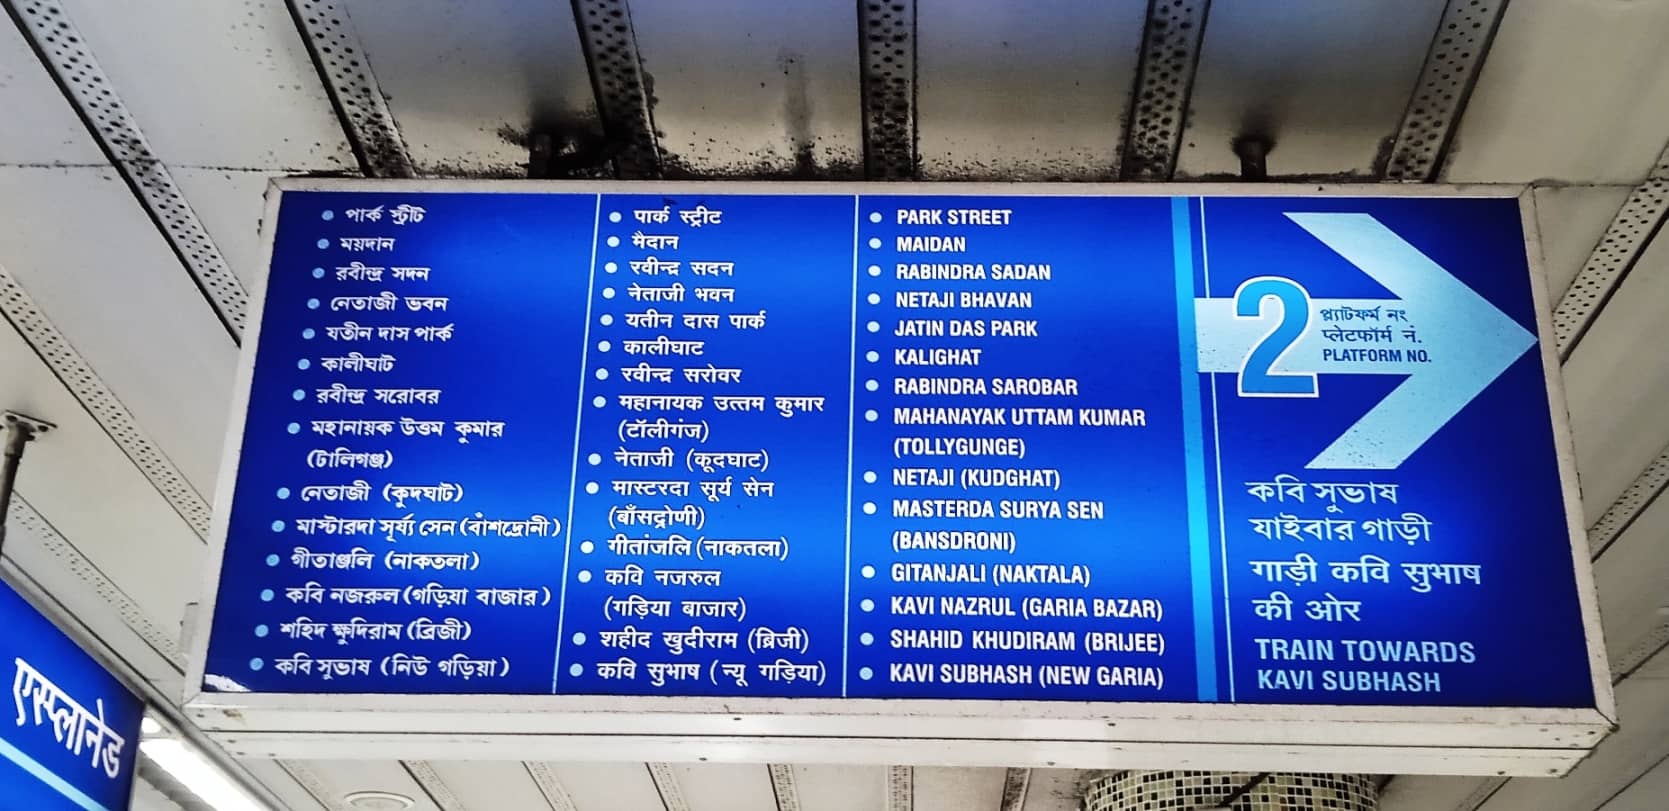 পার্ক স্ট্রীট
ময়দান
রবীন্দ্র সদন
নেতাজী ভবন
যতীন দাস পার্ক
কালীঘাট
রবীন্দ্র সরোবর
মহানায়ক উত্তম কুমার
(টালিগঞ্জ)
নেতাজী (কুদঘাট)
মাস্টারদা সূর্য্য সেন (বাঁশদ্রোনী)
গীতাঞ্জলি (নাকতলা)
কবি নজরুল (গড়িয়া বাজার)
শহিদ ক্ষুদিরাম (ব্রিজী)
কবি সুভাষ (নিউ গড়িয়া)
पार्क स्ट्रीट
मैदान
रवीन्द्र सदन
नेताजी भवन
यतीन दास पार्क
कालीघाट
रवीन्द्र सरोवर
महानायक उत्तम कुमार
(टॉलीगंज)
नेताजी (कूदघाट)
मास्टरदा सूर्य सेन
(बाँसद्रोणी)
गीतांजलि (नाकतला)
कवि नजरुल
(गड़िया बाजार)
शहीद खुदीराम (ब्रिजी)
कवि सुभाष (न्यू गड़िया)
PARK STREET
MAIDAN
RABINDRA SADAN
NETAJI BHAVAN
JATIN DAS PARK
KALIGHAT
RABINDRA SAROBAR
MAHANAYAK UTTAM KUMAR
(TOLLYGUNGE)
NETAJI (KUDGHAT)
MASTERDA SURYA SEN
(BANSDRONI)
GITANJALI (NAKTALA)
KAVI NAZRUL (GARIA BAZAR)
SHAHID KHUDIRAM (BRIJEE)
KAVI SUBHASH (NEW GARIA)
2
প্ল্যাটফর্ম নং
प्लेटफॉर्म नं.
PLATFORM NO.
কবি সুভাষ
যাইবার গাড়ী
गाड़ी कवि सुभाष
की ओर
TRAIN TOWARDS
KAVI SUBHASH
एस्प्लानेड